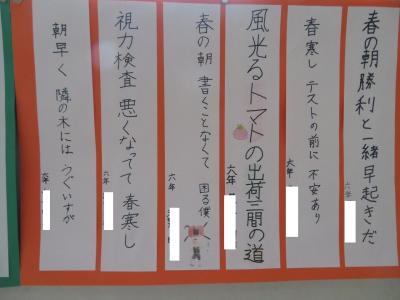 春の朝勝利と一緒早起きだ
六年
春寒し テストの前に 不安あり
六年
風光るトマトの出荷三間の道
六年
春の朝 書くことなくて 困る僕
六年
視力検査 悪くなってて 春寒し
六年
朝早く 隣の木には うぐいすが
六年